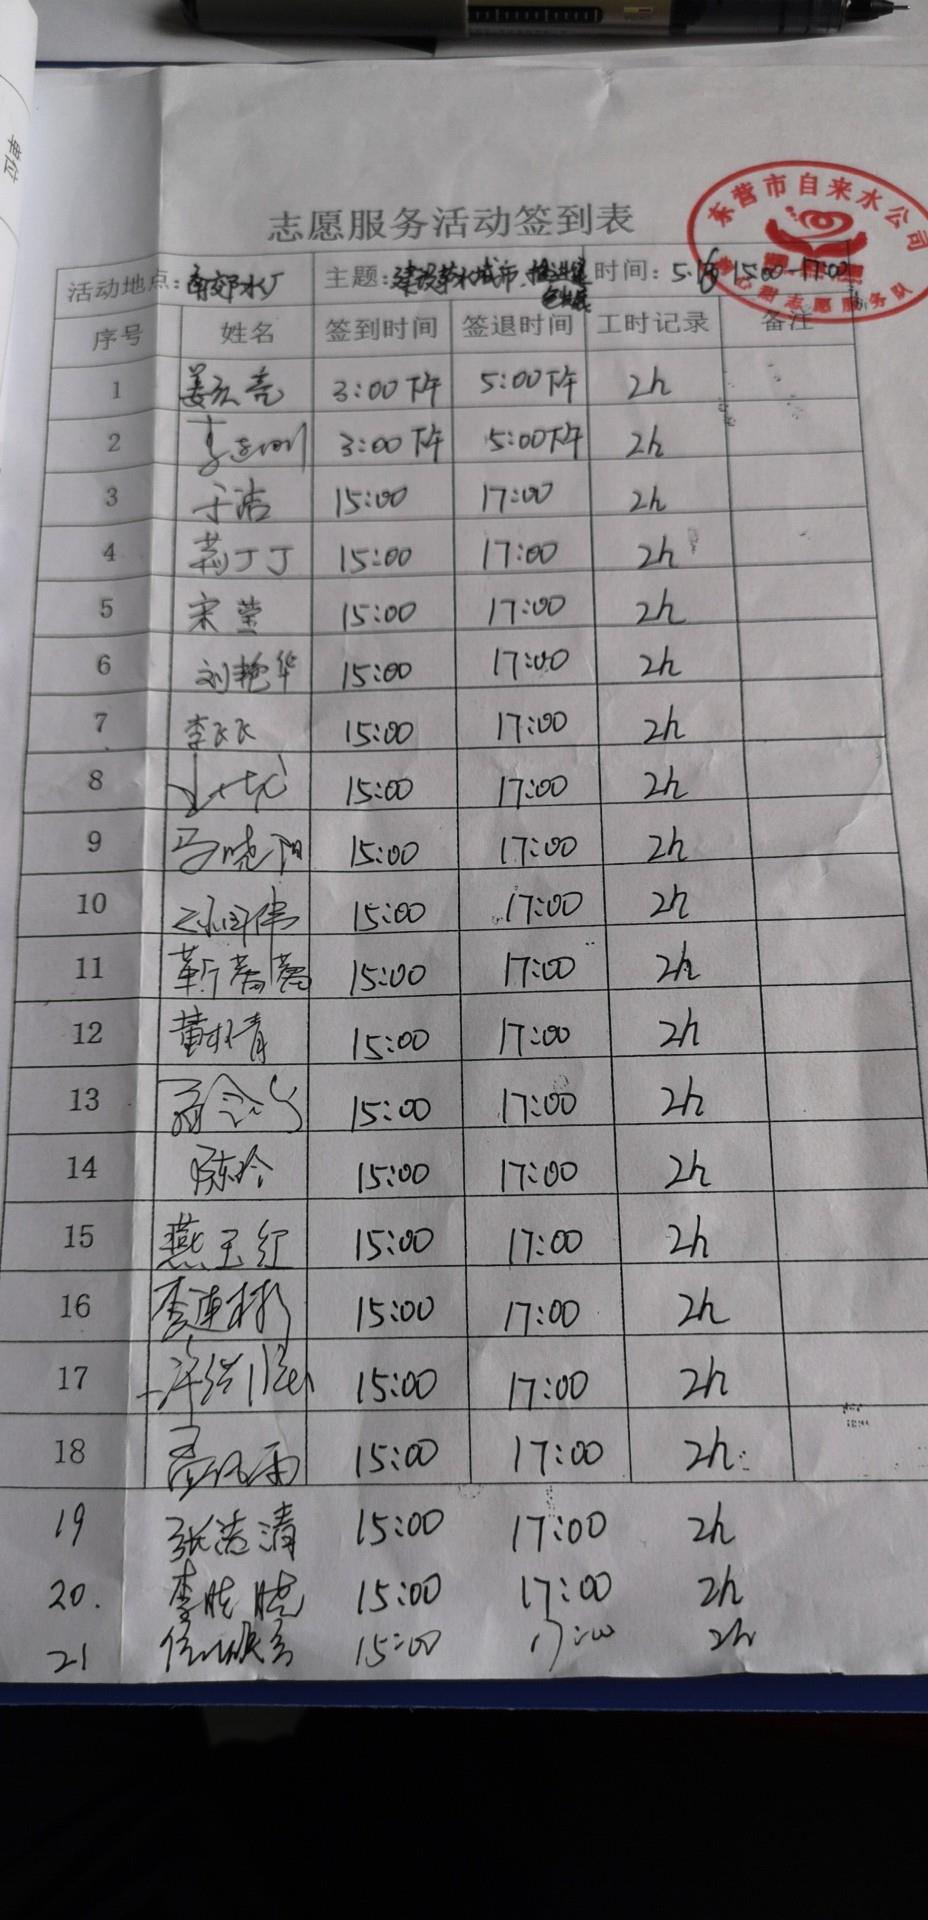 单位
志愿服务活动签到表
东营市自来水公司
志愿服务队
活动地点:南郊水厂 主题:建设节水城市,推进绿色发展 时间:5. 15:00-17:00
序号 姓名 签到时间 签退时间 工时记录 备注
1 姜红亮 3:00下午 5:00下午 2h
2 3:00下午 5:00下午 2h
3 于洁 15:00 17:00 2h
4 丁丁 15:00 17:00 2h
5 宋莹 15:00 17:00 2h
6 刘艳华 15:00 17:00 2h
7 李飞飞 15:00 17:00 2h
8 15:00 17:00 2h
9 马晓阳 15:00 17:00 2h
10 孙国伟 15:00 17:00 2h
11 靳蕾蕾 15:00 17:00 2h
12 董怀青 15:00 17:00 2h
13 15:00 17:00 2h
14 陈玲 15:00 17:00 2h
15 燕玉红 15:00 17:00 2h
16 李连彬 15:00 17:00 2h
17 15:00 17:00 2h
18 15:00 17:00 2h
19 张洁清 15:00 17:00 2h
20. 李晓晓 15:00 17:00 2h
21 15:00 17:00 2h